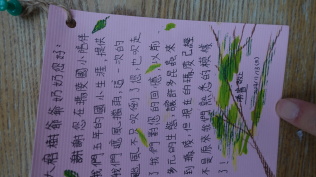 大榕樹爺爺奶奶您好:
謝謝您在瑪陵國小陪伴
我們五年的國小生涯,提供
我們遮風擋雨,這一次的
颱風不只吹倒了您,也吹走
了我們對您的回憶,以前
多元的生態,讓許多昆蟲來
到瑪陵,但現在的瑪陵已經
不是原來我們熟悉的模樣
了!